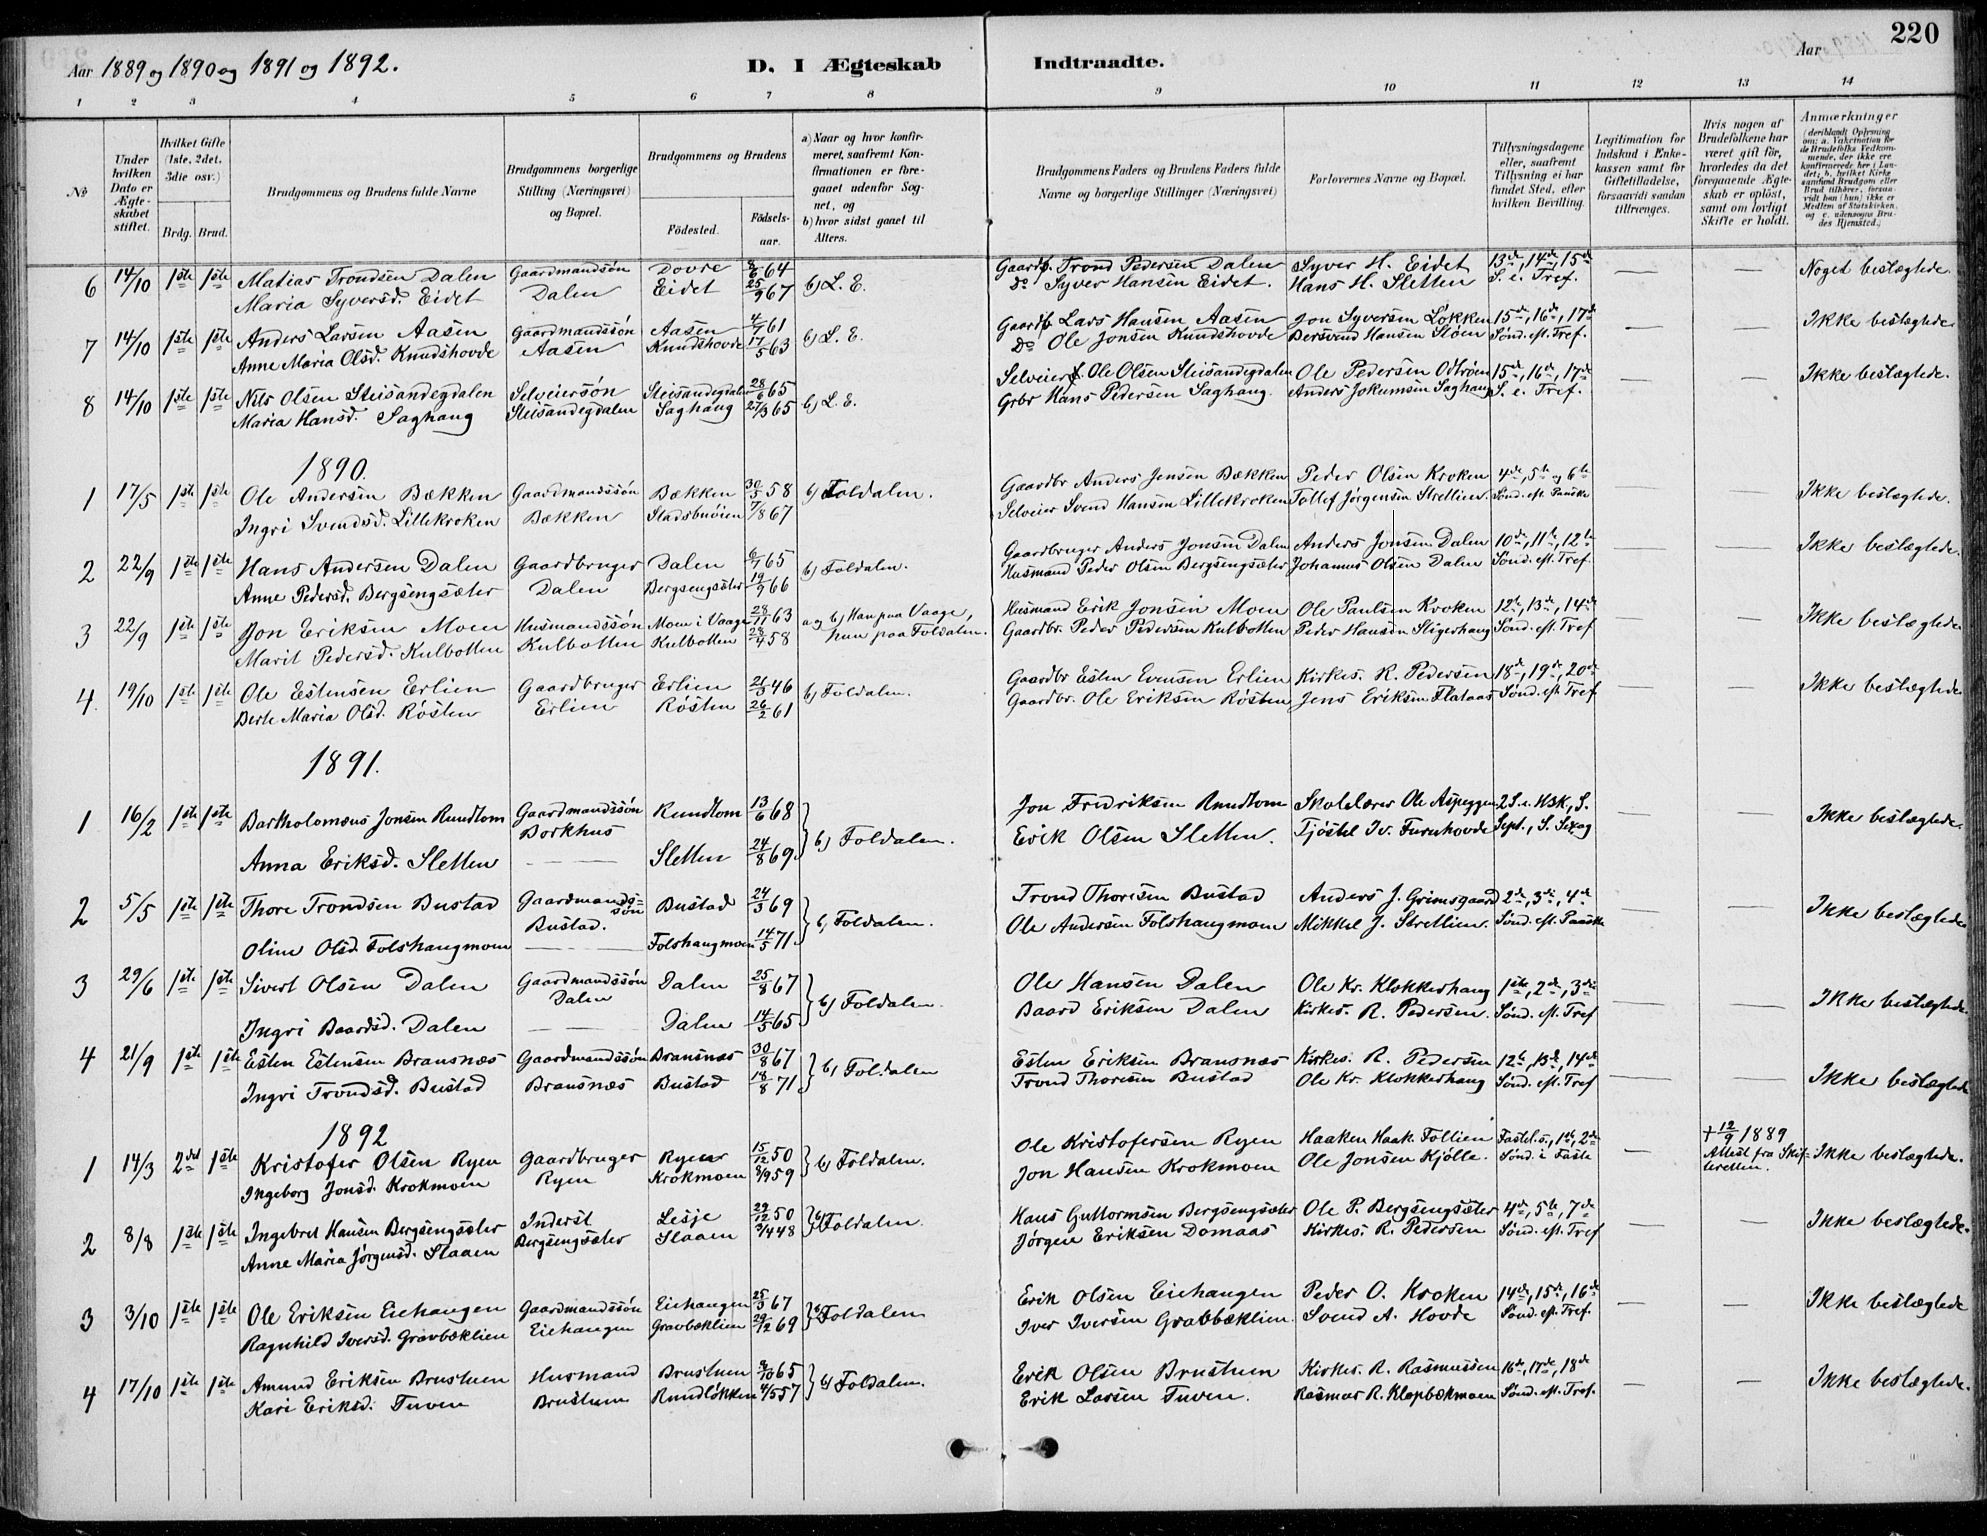 220
Aar 1889 og 1890 og 1891 og 1892.
D. I Ægteskab Indtraadte.
Aar
1 2 3 4 5 6 7 8 9 10 11 12 13 14
№
Under hvilken Dato er Ægteskabet stiftet.
Hvilket Gifte (1ste, 2det, 3die osv.)
Brdg. Brud.
Brudgommens og Brudens fulde Navne
Brudgommens borgerlige Stilling (Næringsvei) og Bopæl.
Brudgommens og Brudens
Fødested.
Fødselsaar.
a) Naar og hvor konfirmeret, saafremt Konfirmationen er foregaaet udenfor Sognet, og
b) hvor sidst gaaet til Alters.
Brudgommens Faders og Brudens Faders fulde Navne og borgerlige Stillinger (Næringsvei)
Forlovernes Navne og Bopæl.
Tillysningsdagene eller, saafremt Tillysning ei har fundet Sted, efter hvilken Bevilling.
Legitimation for Indskud i Enkekassen samt for Giftetilladelse, forsaavidt saadan tiltrænges.
Hvis nogen af Brudefolkene har været gift før, hvorledes da det foregaaende Ægteskab er opløst, samt om lovligt Skifte er holdt.
Anmærkninger
6 14/10 1ste 1ste Matias Trondsen Dalen Gaardmandsøn Dovre 8/6 64 b) L. E. Gaardbr. Trond Pedersen Dalen Syver H. Eidet 13de, 14de, 15de — — Noget beslægtede.
Maria Syversd. Eidet Dalen Eidet 25/9 67 Do Syver Hansen Eidet. Hans H. Sletten S. e. Tref.
7 14/10 1ste 1ste Anders Larsen Aasen Gaardmandssøn Aasen 4/7 61 b) L. E. Gaardbr. Lars Hansen Aasen Jon Syversen Løkken 15de, 16de, 17de — — Ikke beslægtede
Anne Maria Olsd. Knudshovde Aasen Knudshovde 17/5 63 Do Ole Jonsen Knudshovde Bersvend Hansen Støen Sønd. eft. Tref.
8 14/10 1ste 1ste Nils Olsen Steisandegdalen Selveiersøn Steisandegdalen 28/6 65 b) L. E. Selveier Ole Olsen Steisandegdalen Ole Pedersen Odtrøen 15de, 16de, 17de — — Ikke beslægtede.
Maria Hansd. Saghaug Steisandegdalen Saghaug 27/3 65 Grbr Hans Pedersen Saghaug. Anders Jokumsen Saghaug S. e. Tref.
1890.
1 17/5 1ste 1ste Ole Andersen Bækken Gaardmandssøn Bækken 30/5 58 b) Foldalen. Gaardbr Anders Jensen Bækken Peder Olsen Kroken 4de, 5te og 6te — — Ikke beslægtede.
Ingri Svendsd. Lillekroken Bækken Stadsbuøien 7/8 67 Selveier Svend Hansen Lillekroken Tollef Jørgensen Strellien. Sønd. eft. Paaske
2 22/9 1ste 1ste Hans Andersen Dalen Gaardbruger Dalen 6/7 65 b) Foldalen. Gaardbruger Anders Jonsen Dalen Anders Jonsen Dalen 10de, 11te, 12te — — Ikke beslægtede.
Anne Pedersd. Bergsengsæter Dalen Bergsengsæter 19/9 66 Husmand Peder Olsen Bergsengsæter Johannes Olsen Dalen Sønd. eft. Tref.
3 22/9 1ste 1ste Jon Eriksen Moen Husmandssøn Moen i Vaage 28/11 63 a og b) Han paa Vaage, Husmand Erik Jonsen Moen Ole Paulsen Kroken 12te, 13de, 14de — — Ikke beslægtede
Marit Pedersd. Kulbotten Kulbotten Kulbotten 28/4 58 hun paa Foldalen. Gaardbr. Peder Pedersen Kulbotten Peder Hansen Stigerhaug Sønd. eft. Tref
4 19/10 1ste 1ste Ole Estensen Erlien Gaardbruger Erlien 21/3 46 b) Foldalen. Gaardbr Esten Evensen Erlien Kirkes. R. Pedersen 18de, 19de, 20de — — Ikke beslægtede
Berte Maria Olsd. Røsten Erlien Røsten 26/2 61 Gaardbr. Ole Eriksen Røsten Jens Eriksen Flataas Sønd. eft. Tref
1891.
1 16/2 1ste 1ste Bartholomæus Jonsen Rundtom Gaardmandssøn Borkhus Rundtom 13/6 68 b) Foldalen. Jon Fredriksen Rundtom Skolelærer Ole Aspeggen 2 S. e. H3K., S. — — Ikke beslægtede
Anna Eriksd. Sletten — — Sletten 24/8 69 Erik Olsen Sletten. Tjøstel Iv. Furuhovde Sept., S. Sexag
2 5/5 1ste 1ste Thore Trondsen Bustad Gaardmandssøn Bustad. Bustad 24/3 69 b) Foldalen. Trond Thoresen Bustad Anders J. Grimsgaard 2de, 3die, 4de — — Ikke beslægtede
Oline Olsd. Folshaugmoen — — Folshaugmoen 14/5 71 Ole Andersen Folshaugmoen Mikkel J. Strellien. Sønd. eft. Paaske
3 29/6 1ste 1ste Sivert Olsen Dalen Gaardmandssøn Dalen Dalen 25/8 67 b) Foldalen. Ole Hansen Dalen Ole Kr. Klokkerhaug 1ste, 2de, 3die — — Ikke beslægtede.
Ingri Baardsd. Dalen — — Dalen 14/5 65 Baard Eriksen Dalen Kirkes. R. Pedersen. Sønd. eft. Tref
4 21/9 1ste 1ste Esten Estensen Bransnæs Gaardmandssøn Bransnæs 30/8 67 b) Foldalen Esten Eriksen Bransnæs Kirkes. R. Pedersen 12te, 13de, 14de — — Ikke beslægtede
Ingri Trondsd. Bustad Bransnæs Bustad 18/8 71 Trond Thoresen Bustad Ole Kr. Klokkerhaug Sønd. eft. Tref
1892
1 14/3 2det 1ste Kristofer Olsen Ryen Gaardbruger Ryen 15/12 50 b) Foldalen. Ole Kristofersen Ryen Haaken Haak. Follien Fastel.s., 1ste, 2de — + 12/9 1889 Attest fra Skifteretten. Ikke beslægtede.
Ingeborg Jonsd. Krokmoen Ryen Krokmoen 8/9 59 Jon Hansen Krokmoen Ole Jonsen Kjølle. Sønd. i Faste
2 8/8 1ste 1ste Ingebret Hansen Bergsengsæter Inderst Lesje 29/12 50 b) Foldalen. Hans Guttormsen Bergsengsæter Ole P. Bergsengsæter 4de, 5te, 7de — — Ikke beslægtede.
Anne Maria Jørgensd. Slaaen Bergsengsæter Slaaen 3/4 48 Jørgen Eriksen Domaas Kirkes. R. Pedersen Sønd. eft. Tref
3 3/10 1ste 1ste Ole Eriksen Eichaugen Gaardmandssøn Eichaugen 25/3 67 b) Foldalen Erik Olsen Eichaugen Peder O. Kroken 14de, 15de, 16de — — Ikke beslægtede
Ragnhild Iversd. Gravbæklien Eichaugen Gravbæklien 29/12 69 Iver Iversen Gravbæklien. Svend A. Hovde Sønd. eft. Tref.
4 17/10 1ste 1ste Amund Eriksen Brustuen Husmand Brustuen 8/10 65 b) Foldalen. Erik Olsen Brustuen Kirkes. R. Rasmussen 16de, 17de, 18de — — Ikke beslægtede.
Kari Eriksd. Tuven Brustuen Rundløkken 4/5 57 Erik Larsen Tuven. Rasmus R. Klopbækmoen Sønd. eft. Tref.